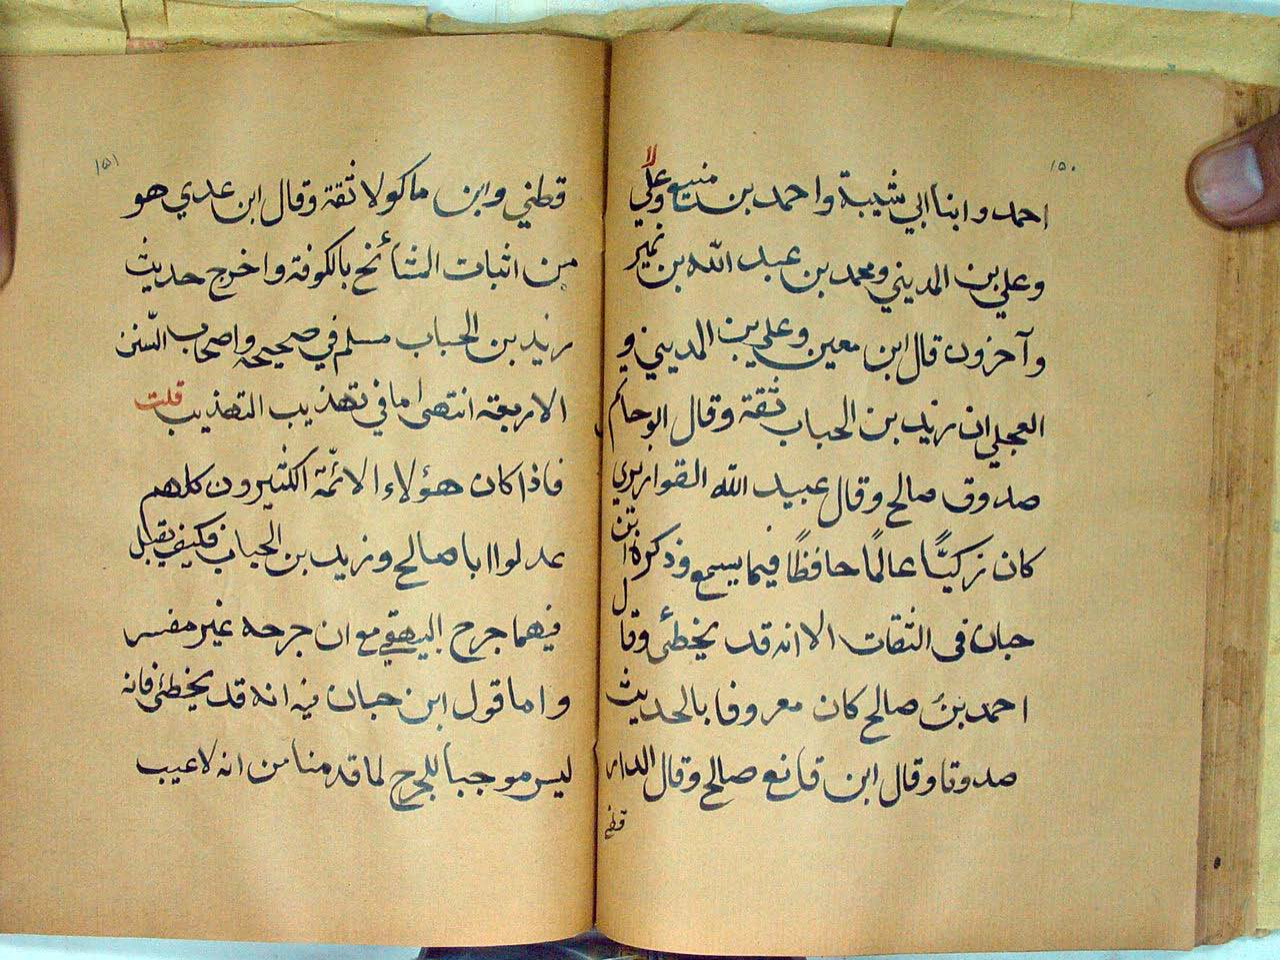 ١٥٠
احمد وابنا ابي شيبة واحمد بن منيع وعلي
وعلي بن المديني ومحمد بن عبد الله بن نمير
وآخرون قال ابن معين وعلي بن المديني و
العجلي ان زيد بن الحباب ثقة وقال ابو حاتم
صدوق صالح وقال عبيد الله القواريري
كان زكيًّا عالمًا حافظًا فيما يسمع وذكره ابن
حبان في الثقات الا انه قد يخطئ وقال
احمد بن صالح كان معروفا بالحديث
صدوقا وقال ابن قانع صالح وقال الدار
قطني
١٥١
قطني وابن ماكولا ثقة وقال ابن عدي هو
من اثبات الشائخ بالكوفة واخرج حديث
زيد بن الحباب مسلم في صحيحه واصحاب السّنن
الاربعة انتهى ما في تهذيب التهذيب قلت
فاذا كان هؤلاء الائمّة الكثيرون كلهم
عدلوا ابا صالح وزيد بن الحباب فكيف يقبل
فيهما جرح البيهقي مع ان جرحه غير مفسر
واما قول ابن حبان فيه انه قد يخطئ فانه
ليس موجبا للجرح لما قدمنا من انه لا عيب